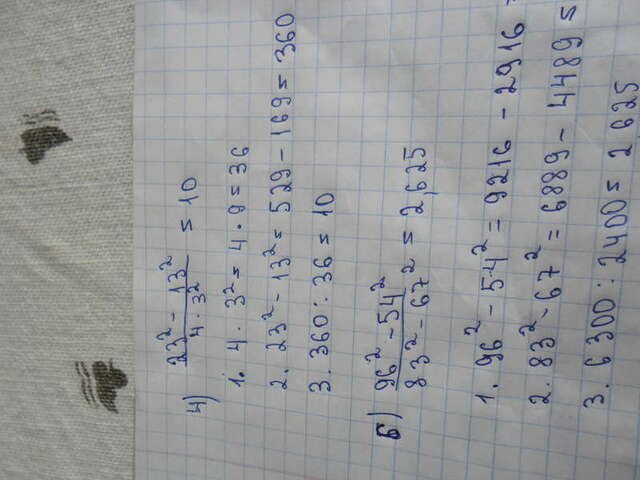 4) (23² - 13²)/(4 · 3²) = 10
1. 4 · 3² = 4 · 9 = 36
2. 23² - 13² = 529 - 169 = 360
3. 360 : 36 = 10
б) (96² - 54²)/(83² - 67²) = 2,625
1. 96² - 54² = 9216 - 2916
2. 83² - 67² = 6889 - 4489 =
3. 6300 : 2400 = 2,625